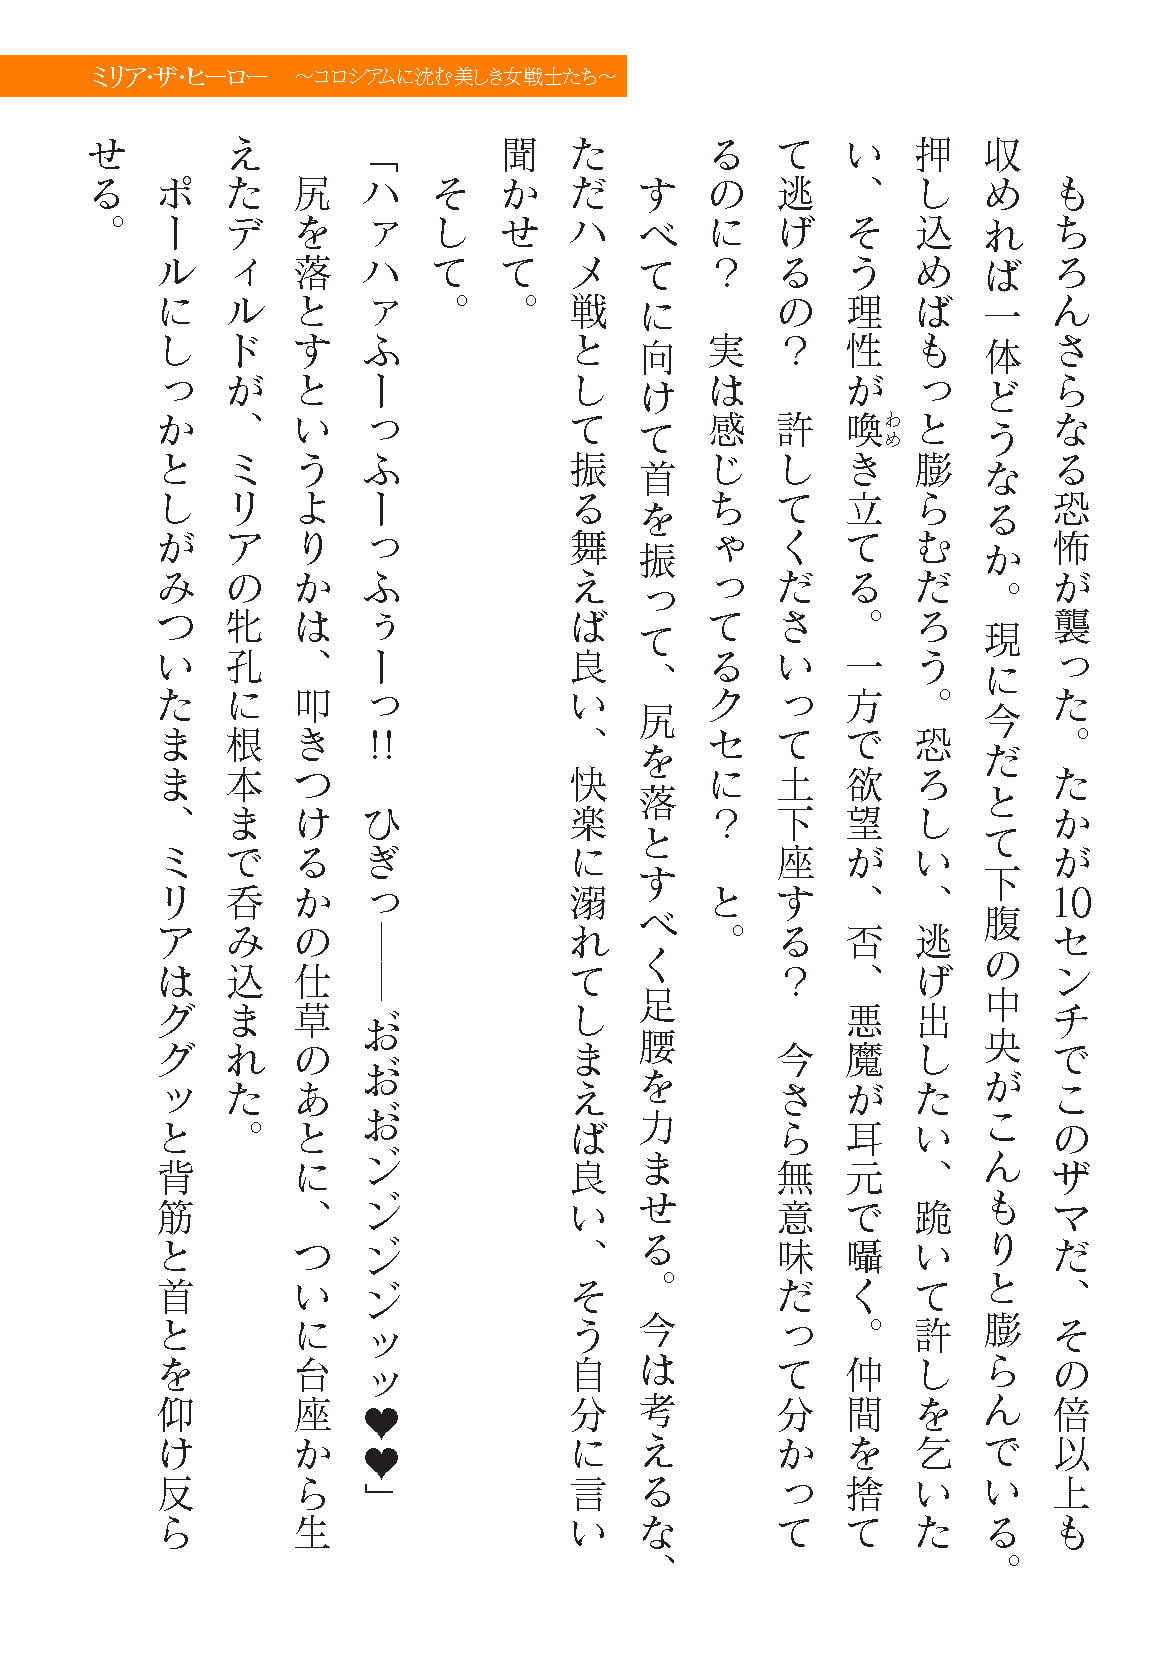 ミリア・ザ・ヒーロー　～コロシアムに沈む美しき女戦士たち～
　もちろんさらなる恐怖が襲った。たかが10センチでこのザマだ、その倍以上も
収めれば一体どうなるか。現に今だとて下腹の中央がこんもりと膨らんでいる。
押し込めばもっと膨らむだろう。恐ろしい、逃げ出したい、跪いて許しを乞いた
い、そう理性が喚き立てる。一方で欲望が、否、悪魔が耳元で囁く。仲間を捨て
て逃げるの？　許してくださいって土下座する？　今さら無意味だって分かって
るのに？　実は感じちゃってるクセに？　と。
　すべてに向けて首を振って、尻を落とすべく足腰を力ませる。今は考えるな、
ただハメ戦として振る舞えば良い、快楽に溺れてしまえば良い、そう自分に言い
聞かせて。
　そして。
「ハァハァふーっふーっふぅーっ!!　ひぎっ――お゛お゛お゛ン゛ン゛ン゛ン゛ッッ♥♥」
　尻を落とすというよりかは、叩きつけるかの仕草のあとに、ついに台座から生
えたディルドが、ミリアの牝孔に根本まで呑み込まれた。
　ポールにしっかとしがみついたまま、ミリアはググッと背筋と首とを仰け反ら
せる。
わめ